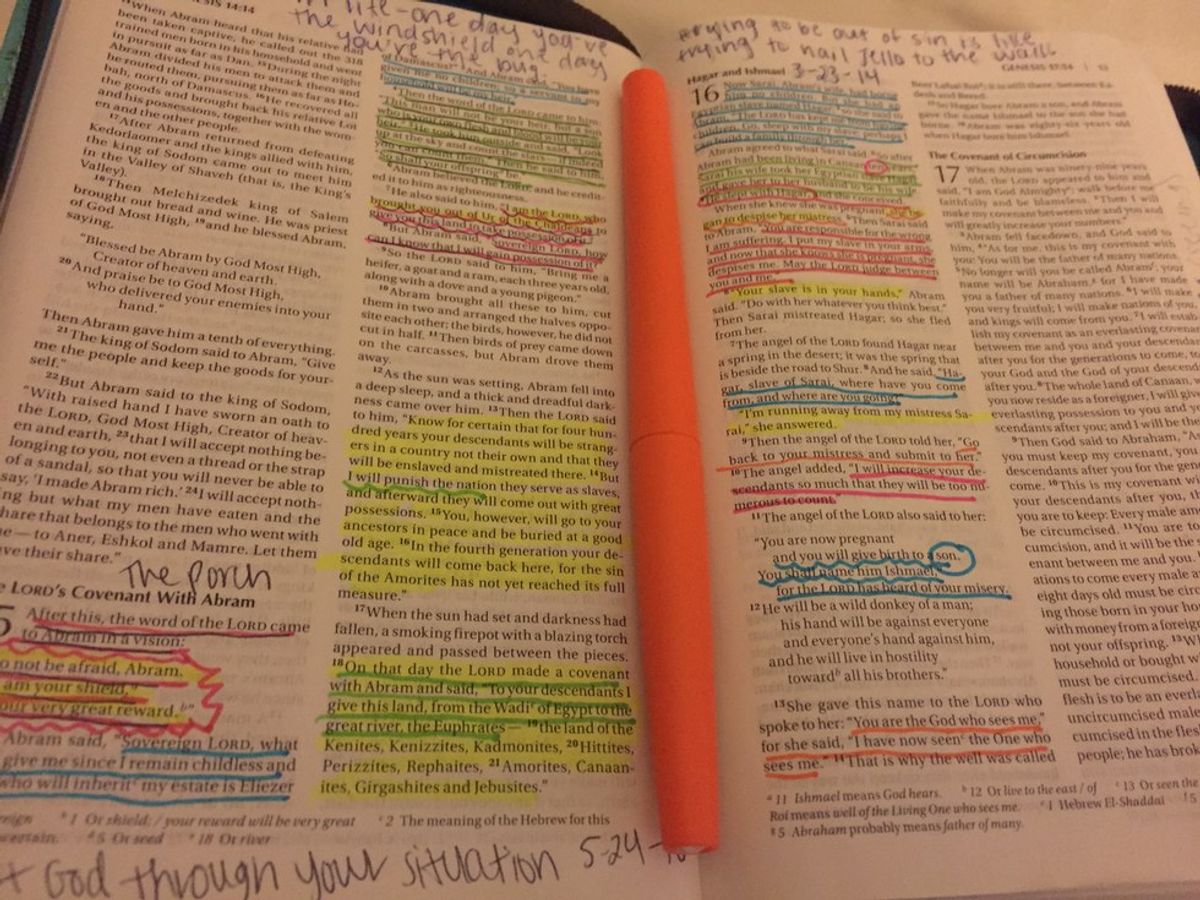 ESIS 14:14
in life-one day you're
the windshield one day
you're the bug.
When Abram heard that his relative had
been taken captive, he called out the 318
trained men born in his household and went
in pursuit as far as Dan. 15During the night
Abram divided his men to attack them and
he routed them, pursuing them as far as Ho-
bah, north of Damascus. 16He recovered all
the goods and brought back his relative Lot
and his possessions, together with the wom-
en and the other people.
17After Abram returned from defeating
Kedorlaomer and the kings allied with him,
the king of Sodom came out to meet him
in the Valley of Shaveh (that is, the King's
Valley).
18Then Melchizedek king of Salem
brought out bread and wine. He was priest
of God Most High, 19and he blessed Abram,
saying,
"Blessed be Abram by God Most High,
Creator of heaven and earth.
20And praise be to God Most High,
who delivered your enemies into your
hand."
Then Abram gave him a tenth of everything.
21The king of Sodom said to Abram, "Give
me the people and keep the goods for your-
self."
22But Abram said to the king of Sodom,
"With raised hand I have sworn an oath to
the LORD, God Most High, Creator of heav-
en and earth, 23that I will accept nothing be-
longing to you, not even a thread or the strap
of a sandal, so that you will never be able to
say, 'I made Abram rich.' 24I will accept noth-
ing but what my men have eaten and the
share that belongs to the men who went with
me—to Aner, Eshkol and Mamre. Let them
have their share."
The Porch
LORD'S Covenant With Abram
After this, the word of the LORD came
to Abram in a vision:
o not be afraid, Abram.
am your shield,
our very great reward.b"
Abram said, "Sovereign LORD, what
give me since I remain childless and
who will inherit my estate is Eliezer
of Damascus?" And Abram said, "You have
given me no children; so a servant in my
household will be my heir."
Then the word of the LORD came to him:
"This man will not be your heir, but a son
who is your own flesh and blood will be your
heir." He took him outside and said, "Look
up at the sky and count the stars—if indeed
you can count them." Then he said to him,
"So shall your offspring be."
Abram believed the LORD, and he credit-
ed it to him as righteousness.
7He also said to him, "I am the LORD, who
brought you out of Ur of the Chaldeans to
give you this land to take possession of it."
8But Abram said, "Sovereign LORD, how
can I know that I will gain possession of it?"
9So the LORD said to him, "Bring me a
heifer, a goat and a ram, each three years old,
along with a dove and a young pigeon."
10Abram brought all these to him, cut
them in two and arranged the halves oppo-
site each other; the birds, however, he did not
cut in half. 11Then birds of prey came down
on the carcasses, but Abram drove them
away.
12As the sun was setting, Abram fell into
a deep sleep, and a thick and dreadful dark-
ness came over him. 13Then the LORD said
to him, "Know for certain that for four hun-
dred years your descendants will be strang-
ers in a country not their own and that they
will be enslaved and mistreated there. 14But
I will punish the nation they serve as slaves,
and afterward they will come out with great
possessions. 15You, however, will go to your
ancestors in peace and be buried at a good
old age. 16In the fourth generation your de-
scendants will come back here, for the sin
of the Amorites has not yet reached its full
measure."
17When the sun had set and darkness had
fallen, a smoking firepot with a blazing torch
appeared and passed between the pieces.
18On that day the LORD made a covenant
with Abram and said, "To your descendants I
give this land, from the Wadi of Egypt to the
great river, the Euphrates— 19the land of the
Kenites, Kenizzites, Kadmonites, 20Hittites,
Perizzites, Rephaites, 21Amorites, Canaan-
ites, Girgashites and Jebusites."
b 1 Or shield; / your reward will be very great c 2 The meaning of the Hebrew for this
d 5 Or seed e 18 Or river
God through your situation 5-24-
trying to be out of sin is like
trying to nail Jello to the wall
3-23-14
GENESIS 17:14
Hagar and Ishmael
16 Now Sarai, Abram's wife, had borne
him no children. But she had an
Egyptian slave named Hagar; so she said to
Abram, "The LORD has kept me from having
children. Go, sleep with my slave; perhaps I
can build a family through her."
Abram agreed to what Sarai said. So after
Abram had been living in Canaan ten years,
Sarai his wife took her Egyptian slave Hagar
and gave her to her husband to be his wife.
He slept with Hagar, and she conceived.
When she knew she was pregnant, she be-
gan to despise her mistress. 5Then Sarai said
to Abram, "You are responsible for the wrong
I am suffering. I put my slave in your arms,
and now that she knows she is pregnant, she
despises me. May the LORD judge between
you and me."
6"Your slave is in your hands," Abram
said. "Do with her whatever you think best."
Then Sarai mistreated Hagar; so she fled
from her.
7The angel of the LORD found Hagar near
a spring in the desert; it was the spring that
is beside the road to Shur. 8And he said, "Ha-
gar, slave of Sarai, where have you come
from, and where are you going?"
"I'm running away from my mistress Sa-
rai," she answered.
9Then the angel of the LORD told her, "Go
back to your mistress and submit to her."
10The angel added, "I will increase your de-
scendants so much that they will be too nu-
merous to count."
11The angel of the LORD also said to her:
"You are now pregnant
and you will give birth to a son.
You shall name him Ishmael,
for the LORD has heard of your misery.
12He will be a wild donkey of a man;
his hand will be against everyone
and everyone's hand against him,
and he will live in hostility
toward b all his brothers."
13She gave this name to the LORD who
spoke to her: "You are the God who sees me,"
for she said, "I have now seen c the One who
sees me." 14That is why the well was called
Beer Lahai Roi; it is still there, between Ka-
desh and Bered.
15So Hagar bore Abram a son, and Abram
gave the name Ishmael to the son she had
borne. 16Abram was eighty-six years old
when Hagar bore him Ishmael.
The Covenant of Circumcision
17 When Abram was ninety-nine years
old, the LORD appeared to him and
said, "I am God Almighty; walk before me
faithfully and be blameless. 2Then I will
make my covenant between me and you and
will greatly increase your numbers."
3Abram fell facedown, and God said to
him, 4"As for me, this is my covenant with
you: You will be the father of many nations.
5No longer will you be called Abram; your
name will be Abraham, for I have made
you a father of many nations. 6I will make
you very fruitful; I will make nations of you,
and kings will come from you. 7I will estab-
lish my covenant as an everlasting covenant
between me and you and your descendants
after you for the generations to come, to
your God and the God of your descendants
after you. 8The whole land of Canaan,
you now reside as a foreigner, I will give
everlasting possession to you and
scendants after you; and I will be the
9Then God said to Abraham, "A
you must keep my covenant, you
descendants after you for the gene
come. 10This is my covenant w
your descendants after you, t
you are to keep: Every male am
be circumcised. 11You are to
cumcision, and it will be the s
enant between me and you.
ations to come every male a
eight days old must be circ
ing those born in your ho
with money from a foreig
not your offspring. 13W
household or bought w
must be circumcised.
flesh is to be an everl
uncircumcised male
cumcised in the fles
people; he has brok
a 11 Ishmael means God hears. b 12 Or live to the east / of c 13 Or seen the
Roi means well of the Living One who sees me. f 1 Hebrew El-Shaddai
g 5 Abraham probably means father of many.